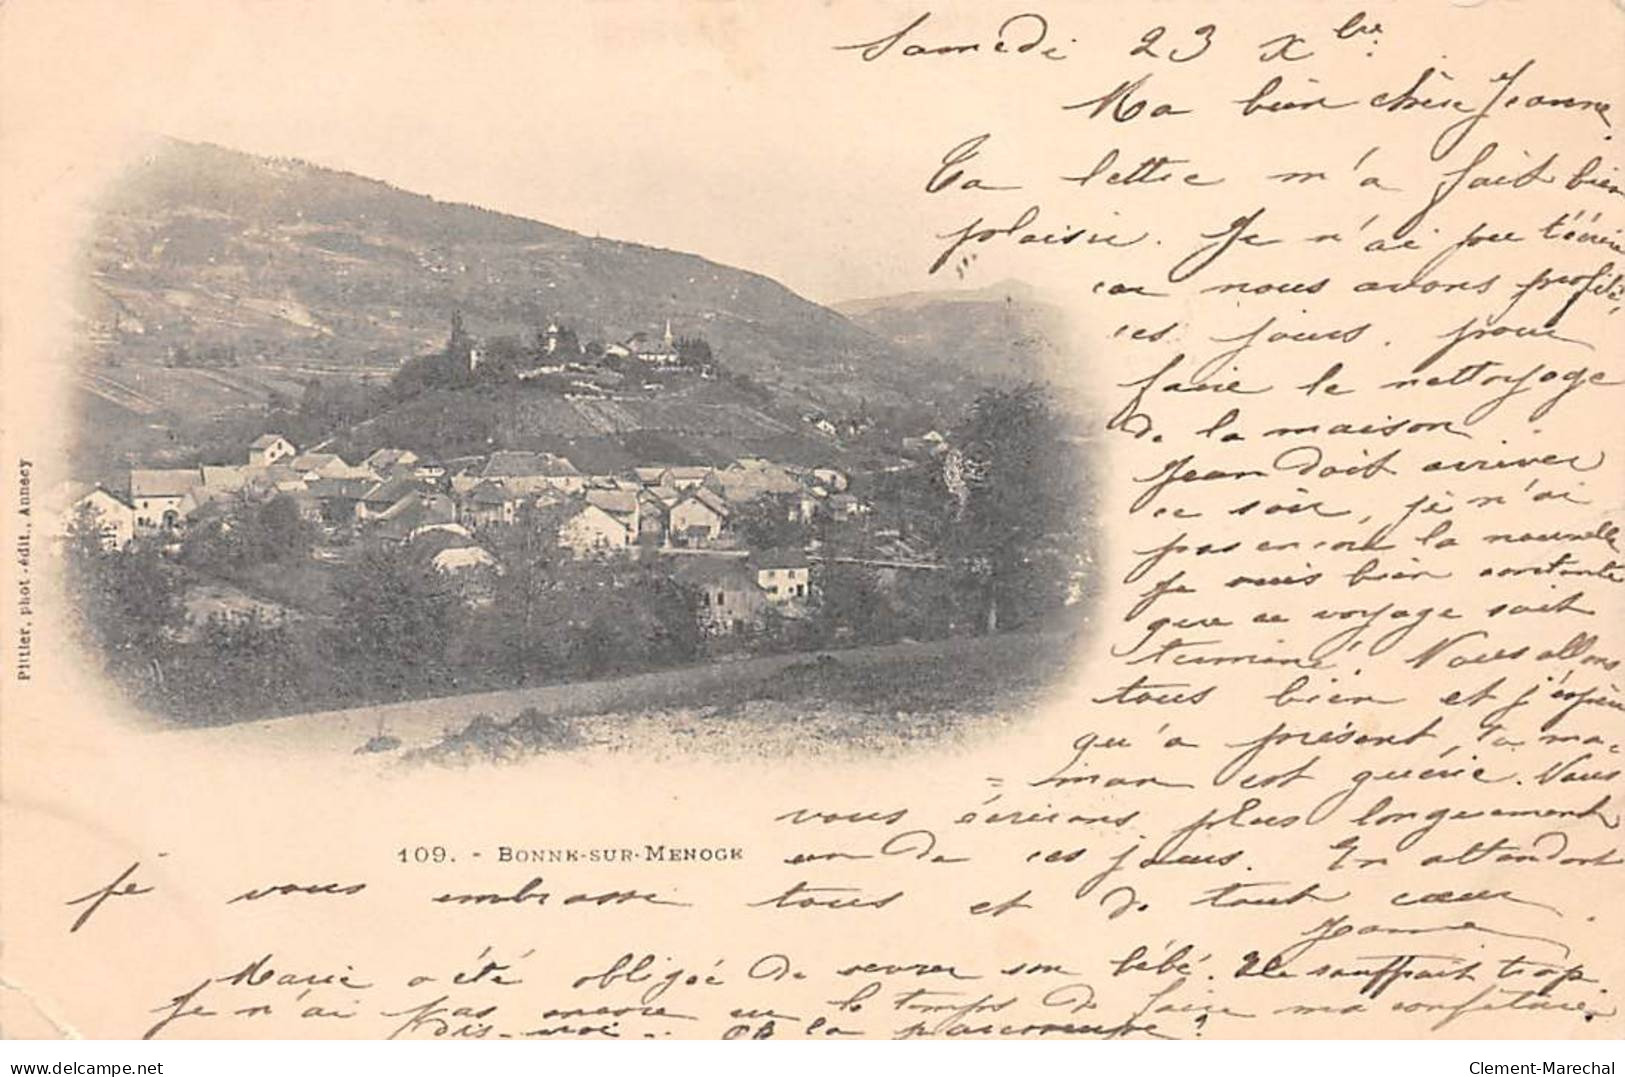 Samedi 23 Xbre
Ma bien chère Jeanne,
Ta lettre m'a fait bien
plaisir. Je n'ai pu t'écrire
car nous avons profité,
ces jours, pour
faire le nettoyage
de la maison
Jean doit arriver
ce soir, je n'ai
pas encore la nouvelle
Je suis bien contente
que ce voyage soit
terminé. Nous allons
tous bien et j'espère
qu'à présent, Ta ma-
=man est guérie. Nous
vous écrirons plus longuement
un de ces jours. En attendant
je vous embrasse tous et de tout cœur
Jeanne
Marie a été obligée de sevrer son bébé. Elle souffrait trop.
Je n'ai pas encore eu le temps de faire ma
dis-moi la
109. - BONNE-SUR-MENOGE
Pittier, phot.-édit., Annecy
delcampe.net
Clement-Marechal